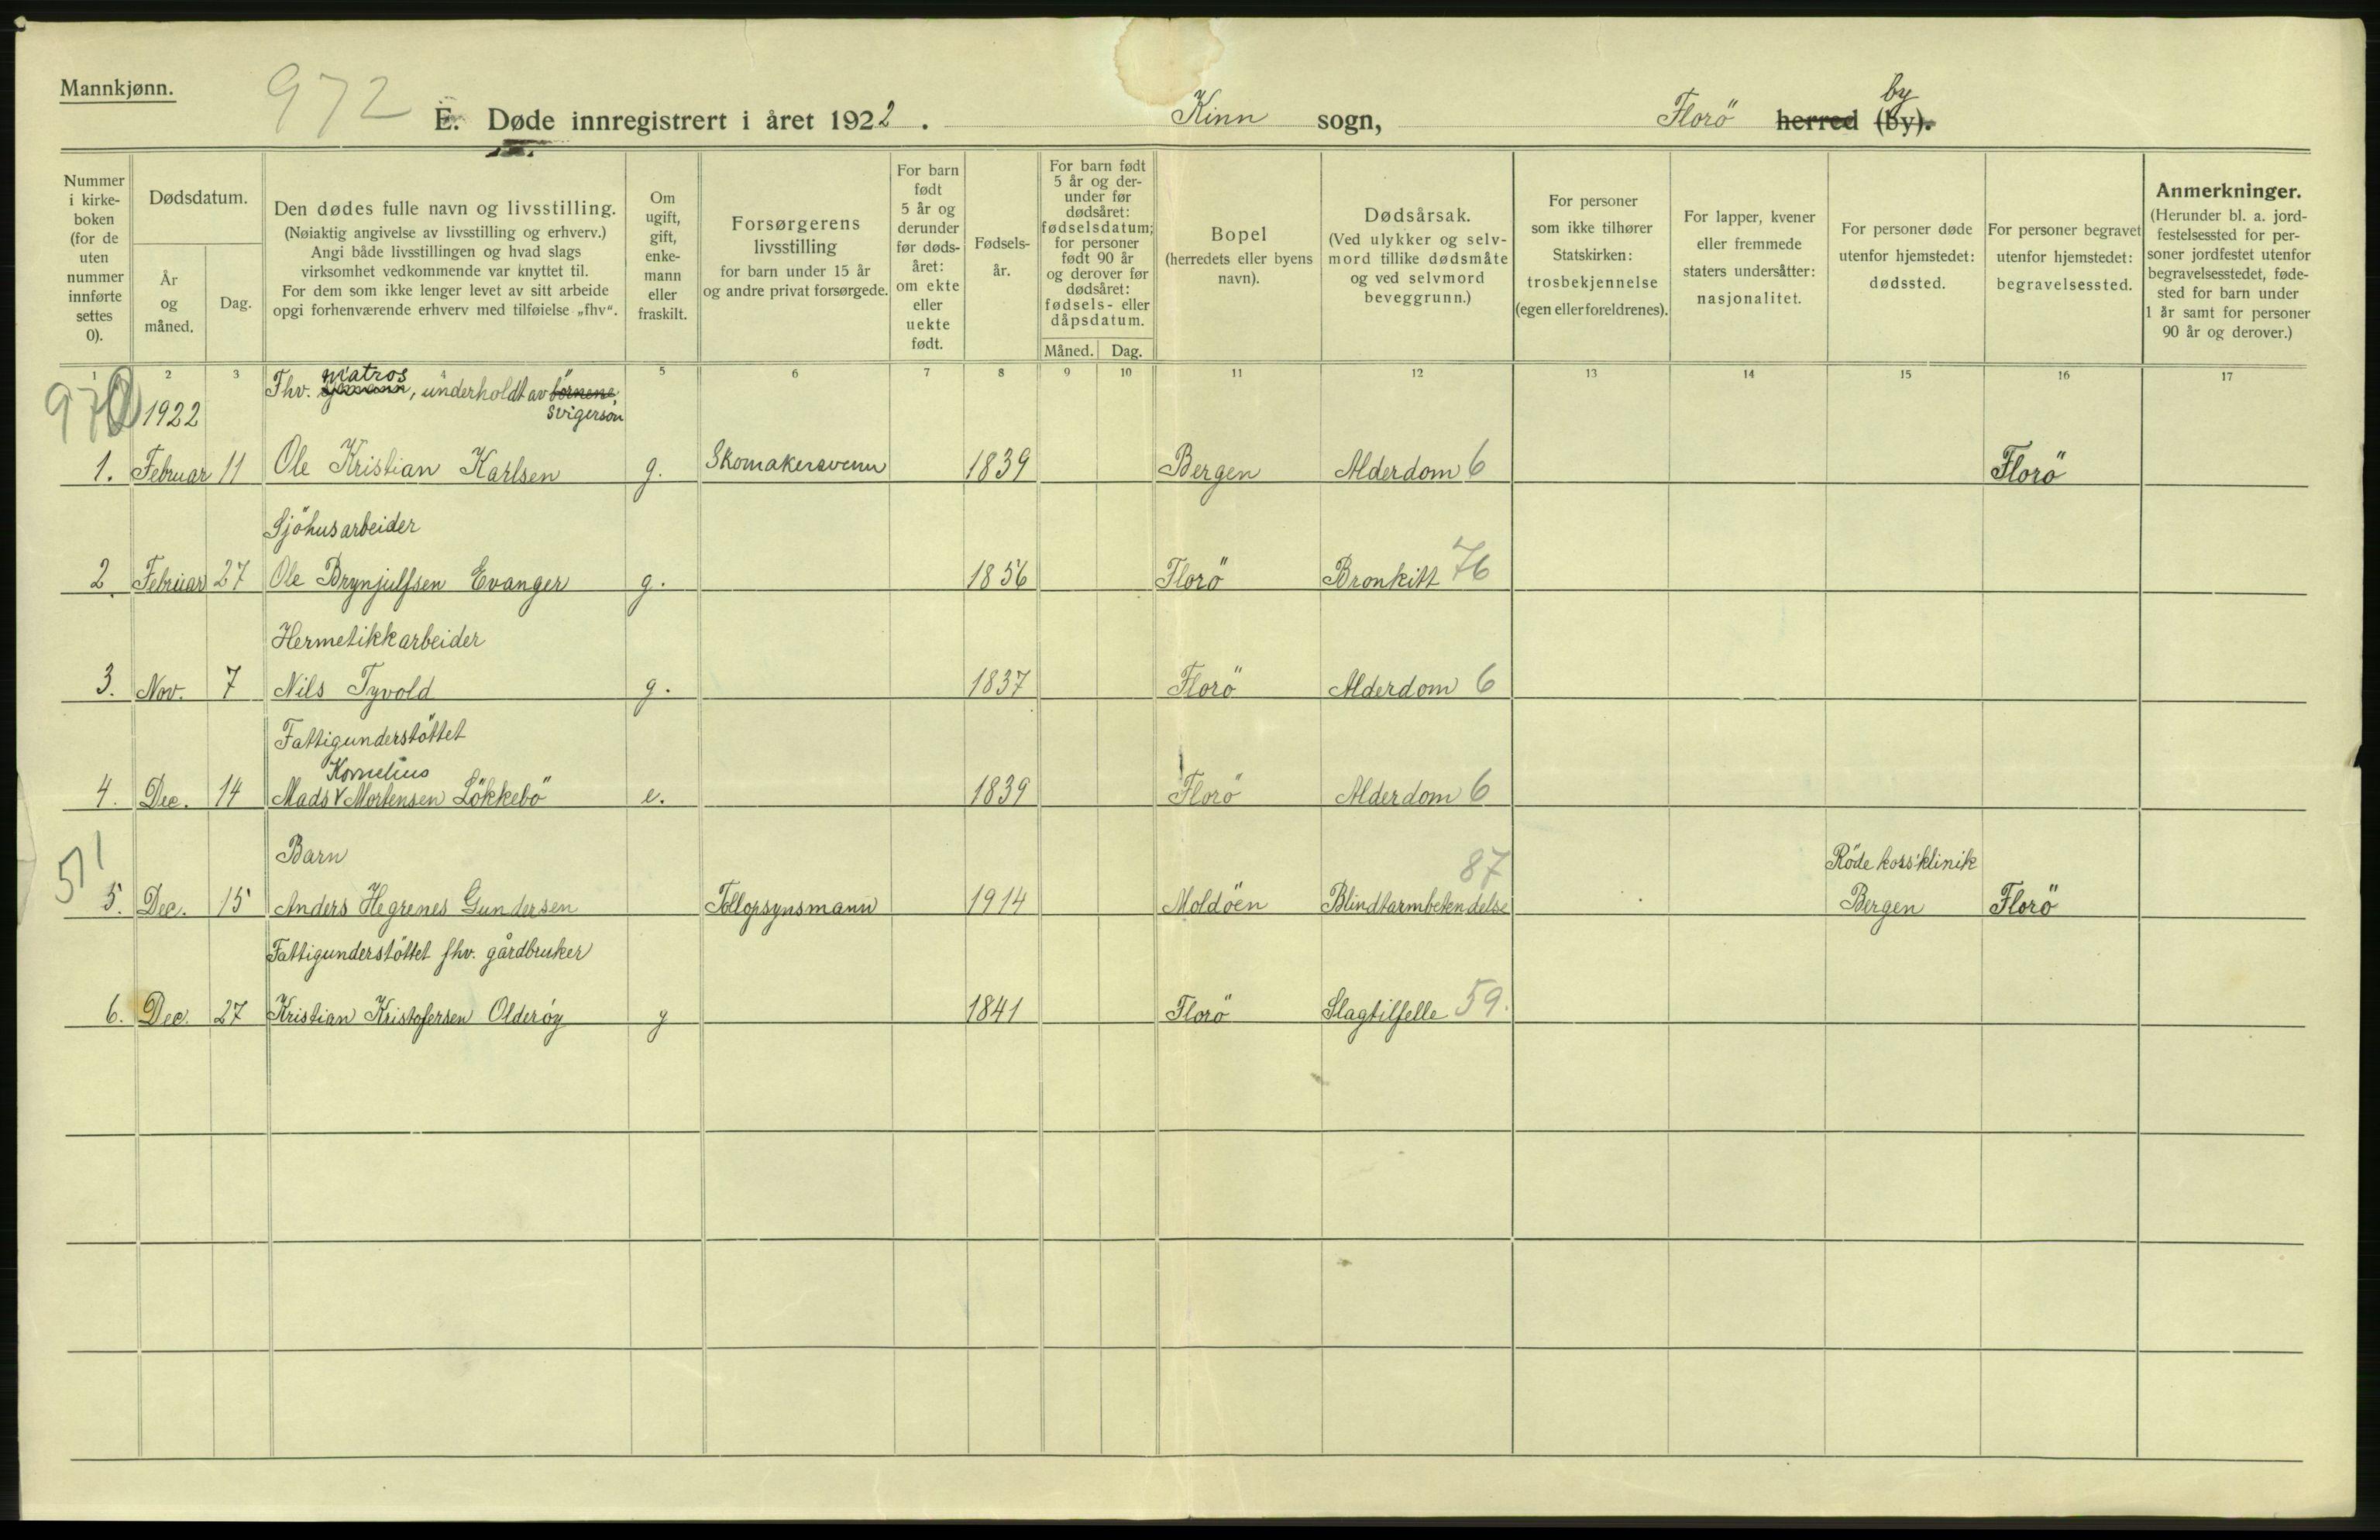 Mannkjønn.
972
E. Døde innregistrert i året 1922. Kinn sogn, Florö herred (by). by
Nummer i kirke-boken (for de uten nummer innførte settes 0).
Dødsdatum.
År og måned.
Dag.
Den dødes fulle navn og livsstilling.
(Nøiaktig angivelse av livsstilling og erhverv.)
Angi både livsstillingen og hvad slags
virksomhet vedkommende var knyttet til.
For dem som ikke lenger levet av sitt arbeide
opgi forhenværende erhverv med tilføielse „fhv“.
Om ugift, gift, enke-mann eller fraskilt.
Forsørgerens
livsstilling
for barn under 15 år
og andre privat forsørgede.
For barn født 5 år og derunder før døds-året: om ekte eller uekte født.
Fødsels-år.
For barn født 5 år og der-under før dødsåret: fødselsdatum; for personer født 90 år og derover før dødsåret: fødsels- eller dåpsdatum.
Måned. Dag.
Bopel
(herredets eller byens
navn).
Dødsårsak.
(Ved ulykker og selv-
mord tillike dødsmåte
og ved selvmord
beveggrunn.)
For personer
som ikke tilhører
Statskirken:
trosbekjennelse
(egen eller foreldrenes).
For lapper, kvener
eller fremmede
staters undersåtter:
nasjonalitet.
For personer døde
utenfor hjemstedet:
dødssted.
For personer begravet
utenfor hjemstedet:
begravelsessted.
Anmerkninger.
(Herunder bl. a. jord-
festelsessted for per-
soner jordfestet utenfor
begravelsesstedet, føde-
sted for barn under
1 år samt for personer
90 år og derover.)
1 2 3 4 5 6 7 8 9 10 11 12 13 14 15 16 17
972
1922
Fhv. matros, underholdt av börnene,
Svigersön
1. Februar 11 Ole Kristian Karlsen g. Skomakersvenn 1839 Bergen Alderdom 6 Florö
Sjöhusarbeider
2. Februar 27 Ole Brynjulfsen Evanger g. 1856 Florö Bronkitt 76
Hermetikkarbeider
3. Nov. 7 Nils Tyvold g. 1837 Florö Alderdom 6
Fattigunderstöttet
Kornelius
4. Dec. 14 Mads V Mortensen Lökkebö e. 1839 Florö Alderdom 6
51
Barn 87 Röde kors' klinik
5. Dec. 15 Anders Hegrenes Gundersen Tollopsynsmann 1914 Moldöen Blindtarmbetendelse Bergen Florö
Fattigunderstöttet fhv. gårdbruker
6. Dec. 27 Kristian Kristofersen Olderöy g 1841 Florö Slagtilfelle 59.